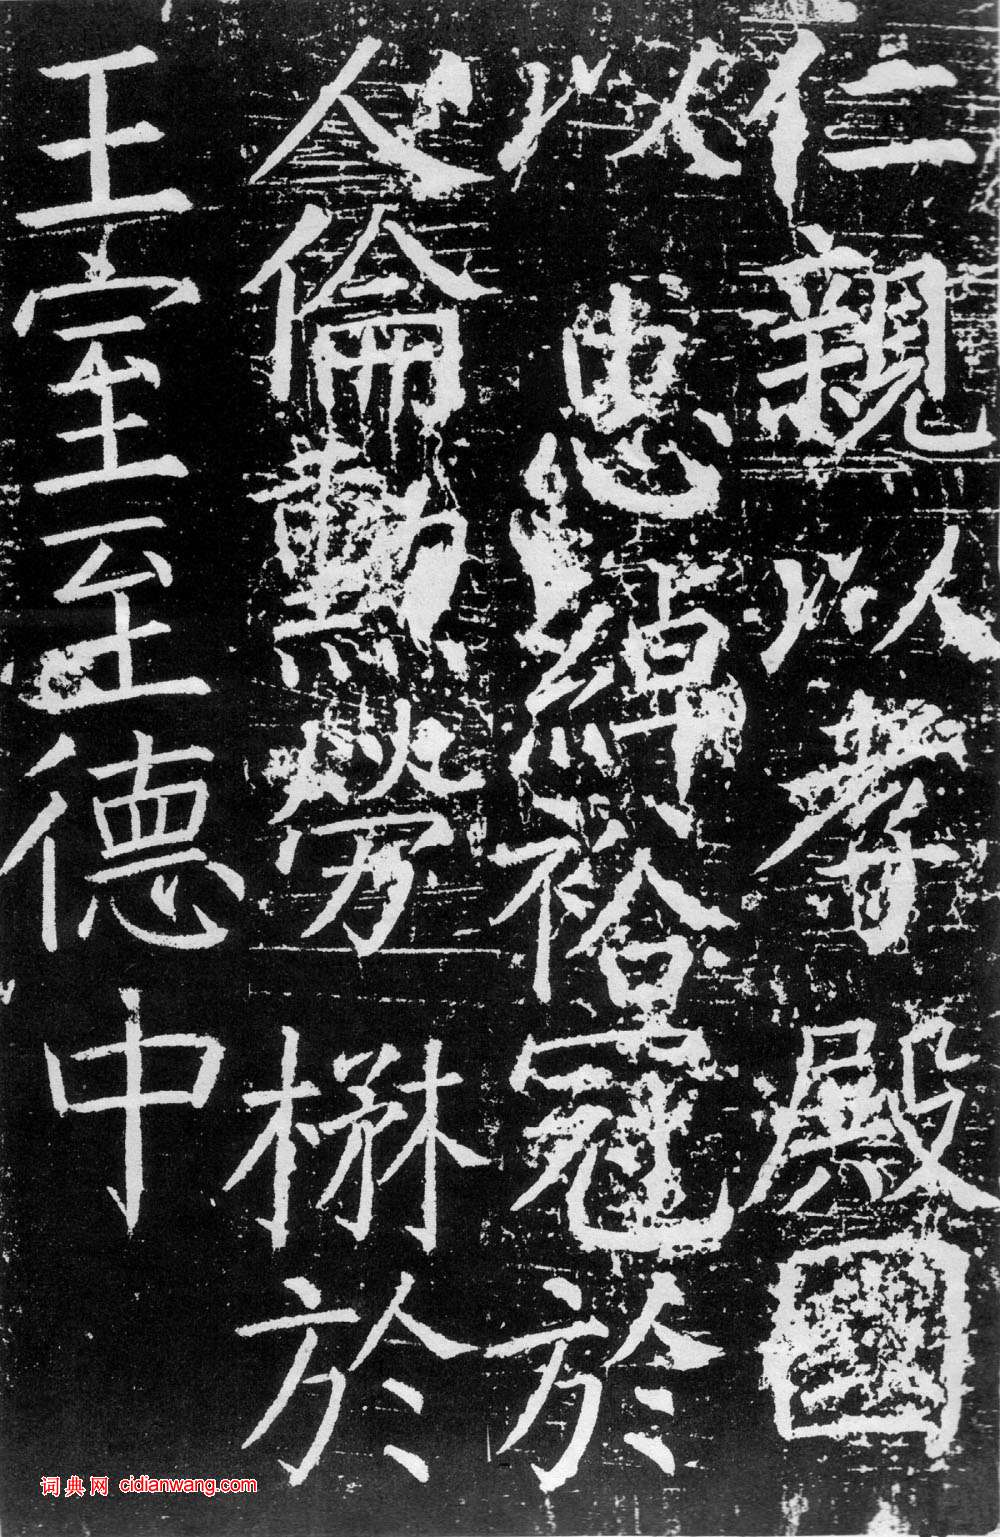 仁親以孝殿國
以忠綽裕冠於
人倫勲勞楙於
王室至德中
词典网 cidianwang.com